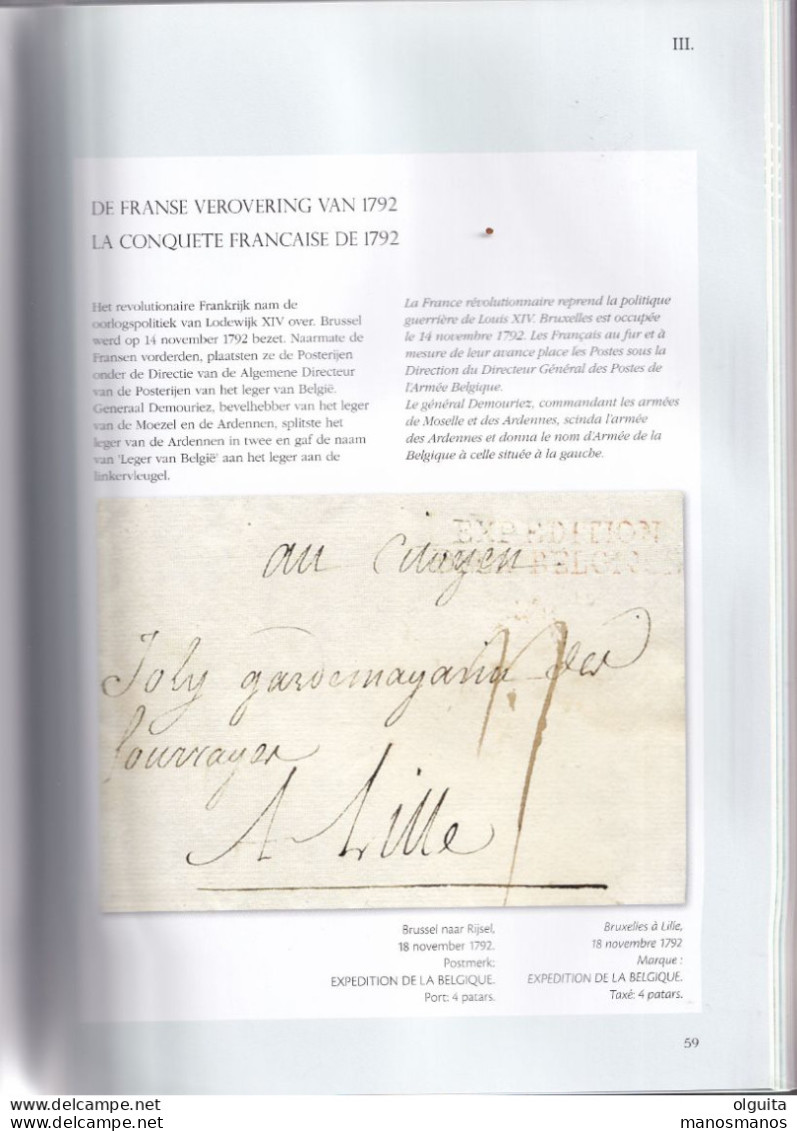 III.
DE FRANSE VEROVERING VAN 1792
LA CONQUETE FRANCAISE DE 1792
Het revolutionaire Frankrijk nam de
oorlogspolitiek van Lodewijk XIV over. Brussel
werd op 14 november 1792 bezet. Naarmate de
Fransen vorderden, plaatsten ze de Posterijen
onder de Directie van de Algemene Directeur
van de Posterijen van het leger van België.
Generaal Demouriez, bevelhebber van het leger
van de Moezel en de Ardennen, splitste het
leger van de Ardennen in twee en gaf de naam
van 'Leger van België' aan het leger aan de
linkervleugel.
La France révolutionnaire reprend la politique
guerrière de Louis XIV. Bruxelles est occupée
le 14 novembre 1792. Les Français au fur et à
mesure de leur avance place les Postes sous la
Direction du Directeur Général des Postes de
l'Armée Belgique.
Le général Demouriez, commandant les armées
de Moselle et des Ardennes, scinda l'armée
des Ardennes et donna le nom d'Armée de la
Belgique à celle située à la gauche.
EXPEDITION
BELGIQUE
au Citoyen
Joly gardemagasin des
fourrages
A Lille
Brussel naar Rijsel,
18 november 1792.
Postmerk:
EXPEDITION DE LA BELGIQUE.
Port: 4 patars.
Bruxelles à Lille,
18 novembre 1792
Marque :
EXPEDITION DE LA BELGIQUE.
Taxé: 4 patars.
59
olguita
manosmanos